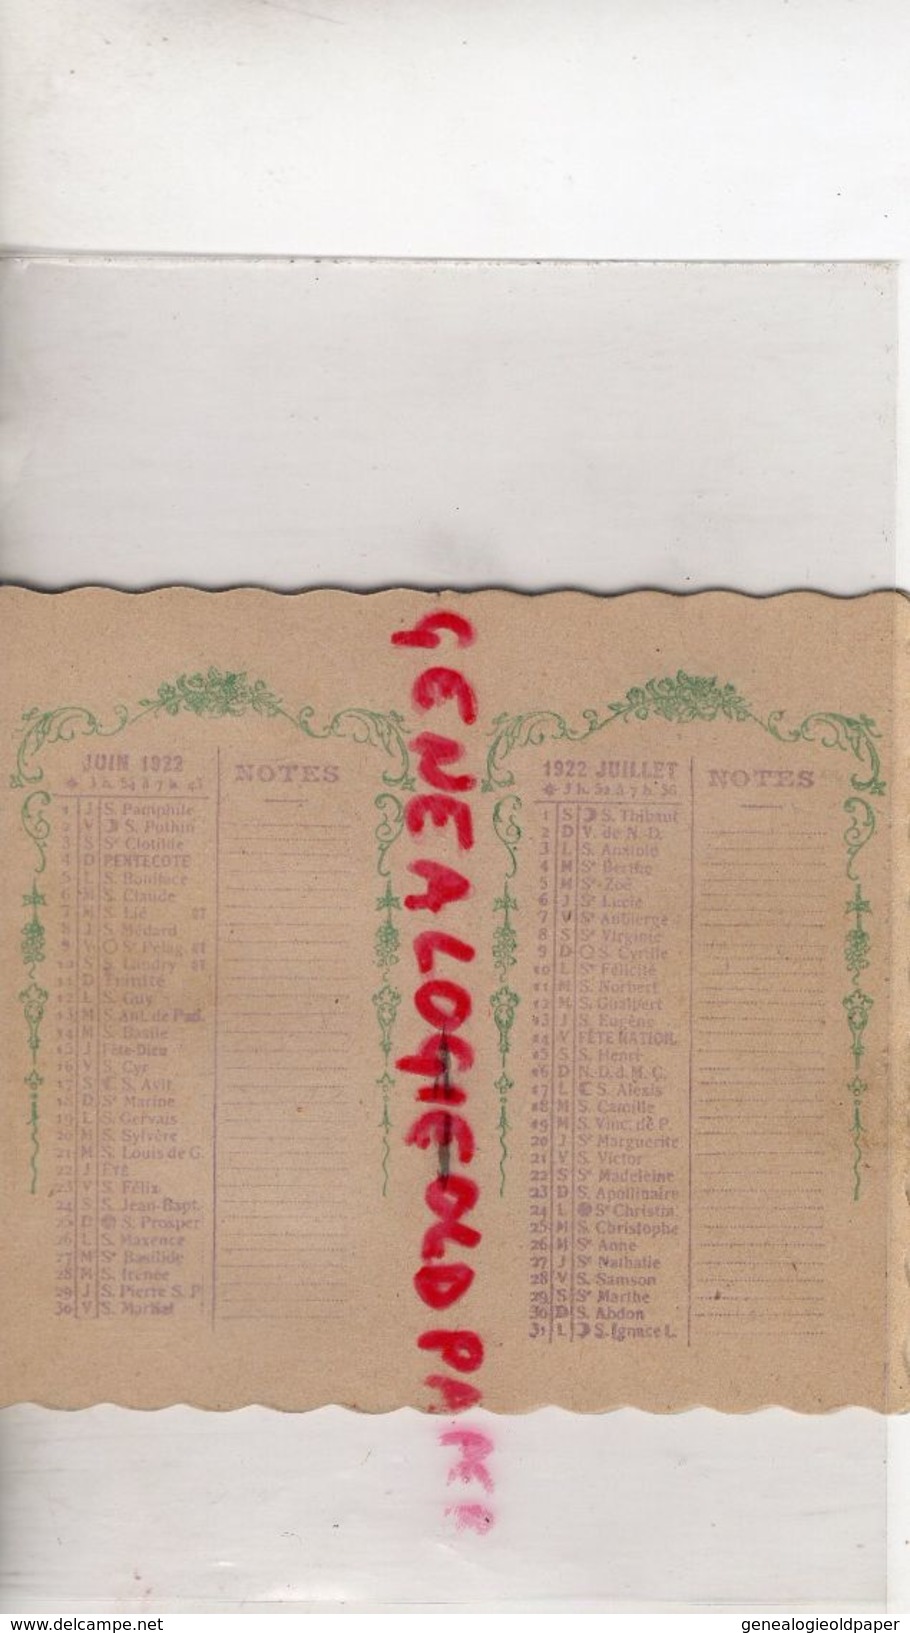 JUIN 1922
3 h. 54 à 7 h. 43
NOTES
1 J S. Pamphile
2 V S. Pothin
3 S Se Clotilde
4 D PENTECOTE
5 L S. Boniface
6 M S. Claude
7 M S. Lié QT
8 J S. Médard
9 V Se Pélag. QT
10 S S. Landry QT
11 D Trinité
12 L S. Guy
13 M S. Ant. de Pad.
14 M S. Basile
15 J Fête-Dieu
16 V S. Cyr
17 S S. Avit
18 D Se Marine
19 L S. Gervais
20 M S. Sylvère
21 M S. Louis de G.
22 J ÉTÉ
23 V S. Félix
24 S S. Jean-Bapt.
25 D S. Prosper
26 L S. Maxence
27 M Se Basilide
28 M S. Irénée
29 J S. Pierre S. P
30 V S. Martial
1922 JUILLET
3 h. 52 à 7 h. 36
NOTES
1 S S. Thibaut
2 D V. de N.-D.
3 L S. Anatole
4 M Se Berthe
5 M Se Zoé
6 J Se Lucie
7 V Se Aubierge
8 S Se Virginie
9 D S. Cyrille
10 L Se Félicité
11 M S. Norbert
12 M S. Gualbert
13 J S. Eugène
14 V FÊTE NATION.
15 S S. Henri
16 D N.D. d. M. C.
17 L S. Alexis
18 M S. Camille
19 M S. Vinc. de P.
20 J Se Marguerite
21 V S. Victor
22 S Se Madeleine
23 D S. Apollinaire
24 L Se Christin.
25 M S. Christophe
26 M Se Anne
27 J Se Nathalie
28 V S. Samson
29 S Se Marthe
30 D S. Abdon
31 L S. Ignace L.
GENEALOGIEOLDPAPER
genealogieoldpaper